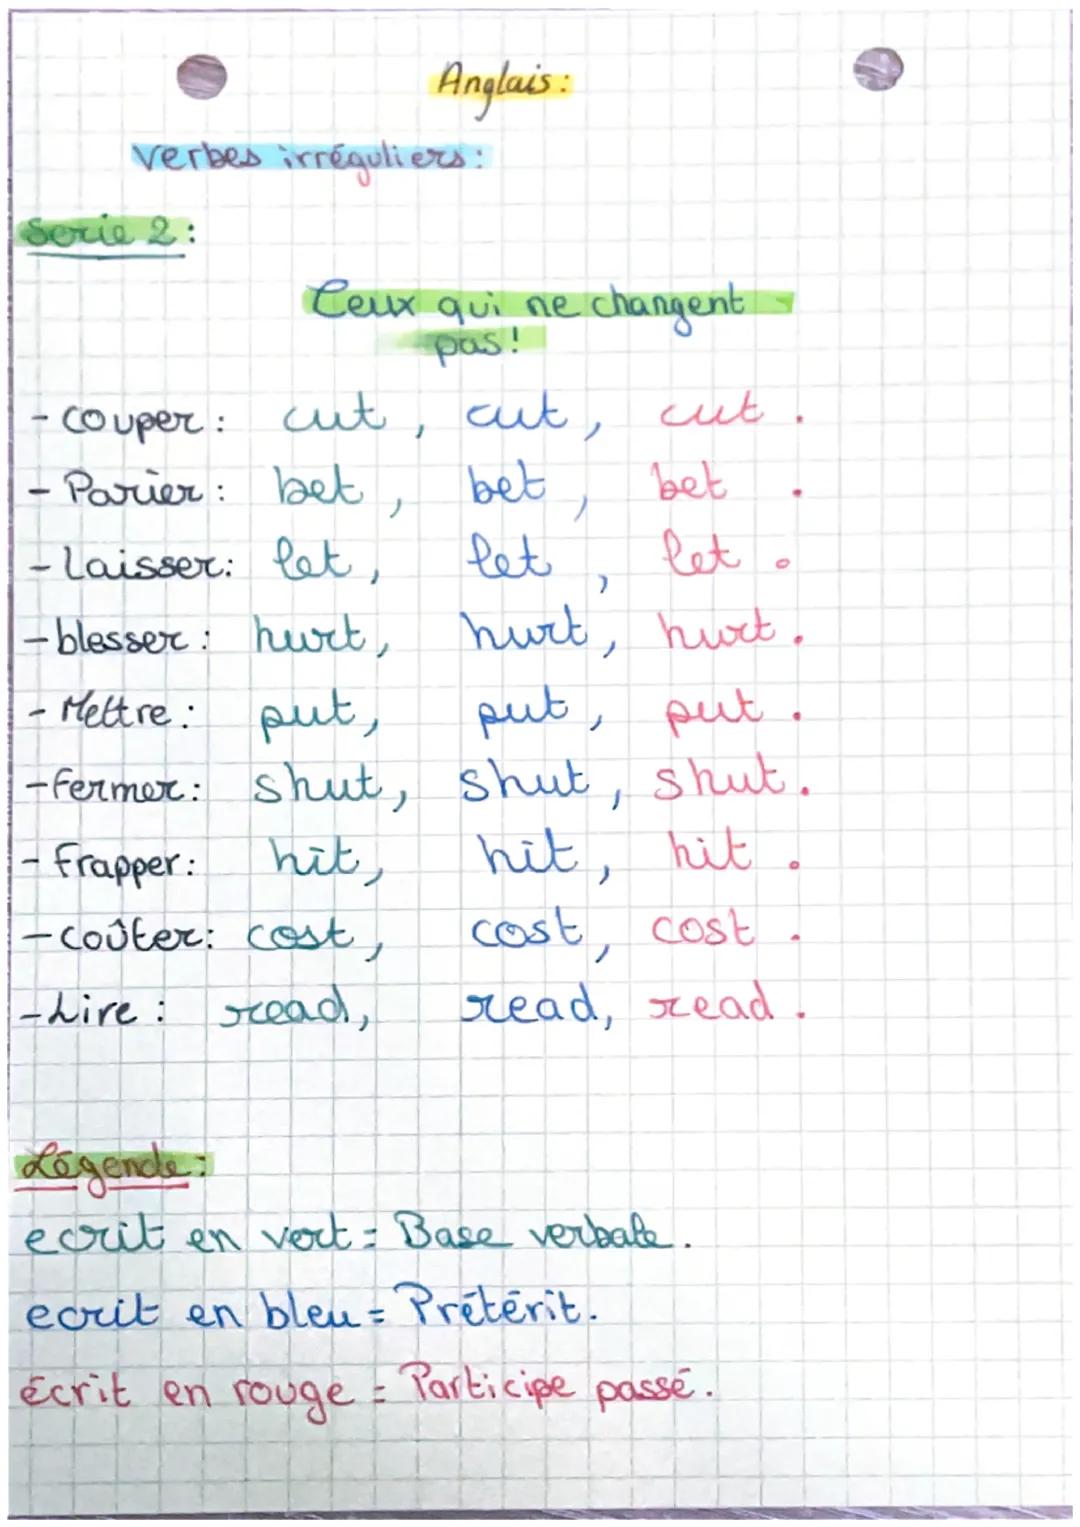 Anglais:
verbes irréguliers:
Serie 2:
Ceux qui ne changent
pas!
- couper: cut, cut, cut.
- Parier: bet, bet, bet.
- Laisser: let, let, let.
- blesser: hurt, hurt, hurt.
- Mettre: put, put, put.
- Fermer: shut, shut, shut.
- Frapper: hit, hit, hit.
- coûter: cost, cost, cost.
- Lire: read, read, read.
Légende:
ecrit en vert = Base verbale.
ecrit en bleu = Prétérit.
écrit en rouge = Participe passé.